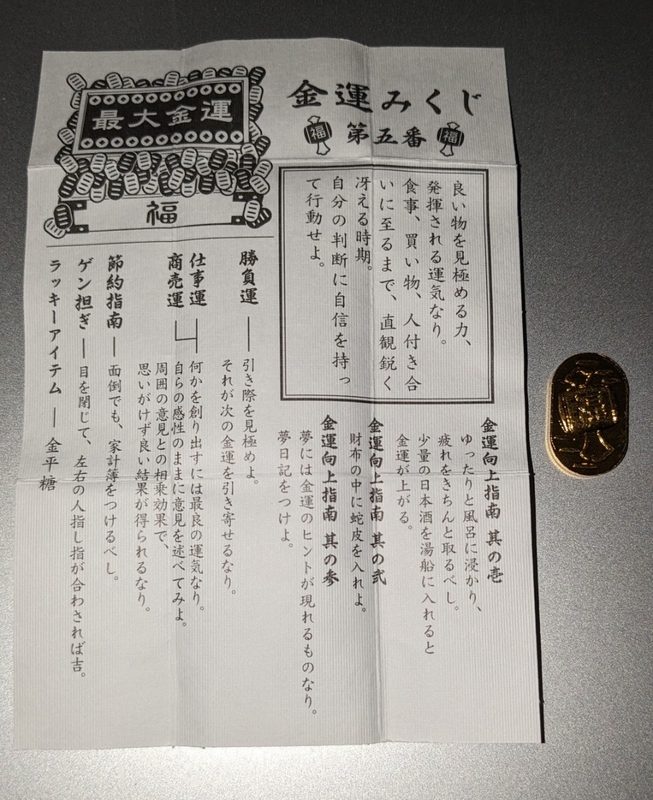 金運みくじ
福
第五番
福
良い物を見極める力、
発揮される運気なり。
食事、買い物、人付き合
いに至るまで、直観鋭く
冴える時期。
自分の判断に自信を持っ
て行動せよ。
金運向上指南 其の壱
ゆったりと風呂に浸かり、
疲れをきちんと取るべし。
少量の日本酒を湯船に入れると
金運が上がる。
金運向上指南 其の弐
財布の中に蛇皮を入れよ。
金運向上指南 其の参
夢には金運のヒントが現れるものなり。
夢日記をつけよ。
最大金運
福
勝負運 ― 引き際を見極めよ。
それが次の金運を引き寄せるなり。
仕事運
商売運
何かを創り出すには最良の運気なり。
自らの感性のままに意見を述べてみよ。
周囲の意見との相乗効果で、
思いがけず良い結果が得られるなり。
節約指南 ― 面倒でも、家計簿をつけるべし。
ゲン担ぎ ― 目を閉じて、左右の人指し指が合わされば吉。
ラッキーアイテム ― 金平糖